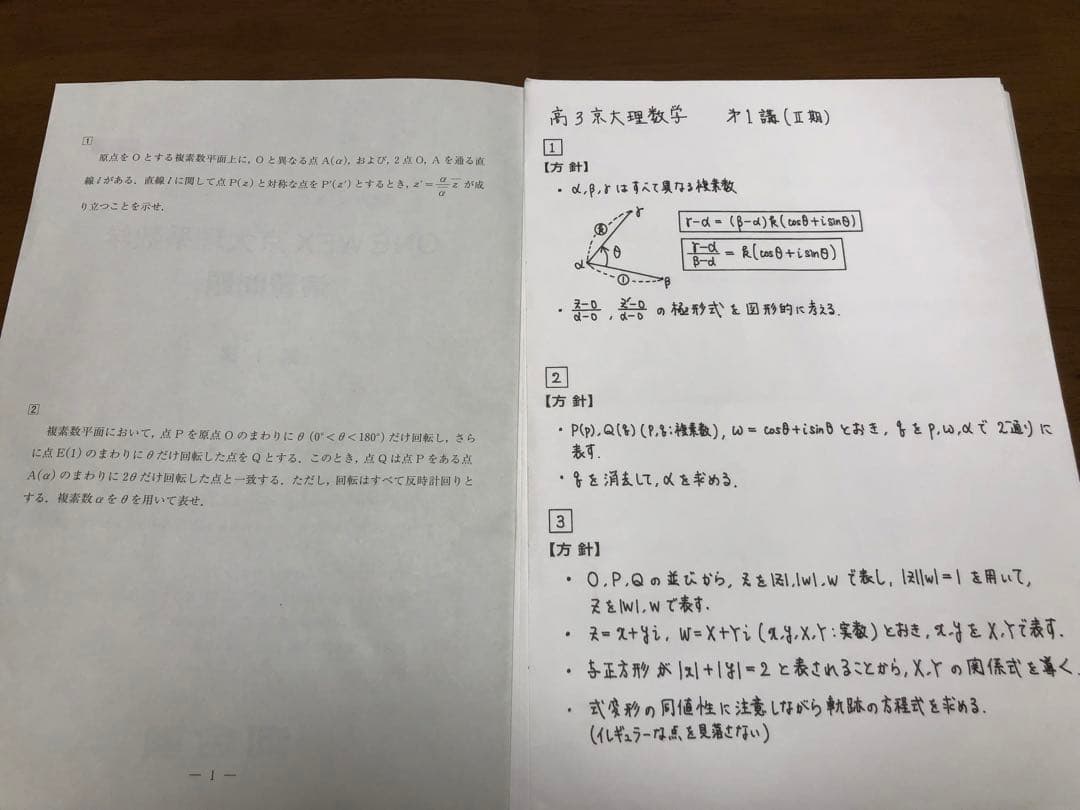 1
原点をOとする複素数平面上に，Oと異なる点A(α)，および，2点O，Aを通る直
線lがある．直線lに関して点P(z)と対称な点をP'(z')とするとき，z'=α/ᾱ z̄ が成
り立つことを示せ．
2
複素数平面において，点Pを原点Oのまわりにθ(0°<θ<180°)だけ回転し，さら
に点E(1)のまわりにθだけ回転した点をQとする．このとき，点Qは点Pをある点
A(α)のまわりに2θだけ回転した点と一致する．ただし，回転はすべて反時計回りと
する．複素数αをθを用いて表せ．
— 1 —
高3京大理数学 第1講(Ⅱ期)
1
【方針】
・α,β,γはすべて異なる複素数
γ
k
θ
α
1
β
γ-α=(β-α)k(cosθ+isinθ)
(γ-α)/(β-α)=k(cosθ+isinθ)
・(z-0)/(α-0), (z'-0)/(α-0) の極形式を図形的に考える.
2
【方針】
・P(p),Q(q)(p,q:複素数), w=cosθ+isinθとおき, qをp,w,αで2通りに
表す.
・qを消去して,αを求める.
3
【方針】
・O,P,Qの並びから, zを|z|,|w|,wで表し, |z||w|=1を用いて,
zを|w|,wで表す.
・z=x+yi, w=X+Yi(x,y,X,Y:実数)とおき, x,yをX,Yで表す.
・与正方形が|x|+|y|=2と表されることから, X,Yの関係式を導く.
・式変形の同値性に注意しながら軌跡の方程式を求める.
(イレギュラーな点を見落さない)